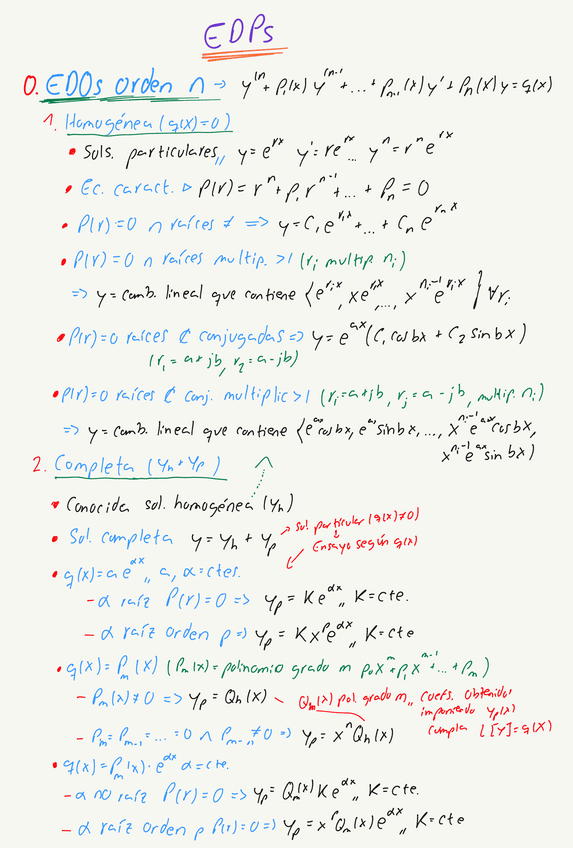 EDPs
0. EDOs orden n → y⁽ⁿ + P₁(x) y⁽ⁿ⁻¹ + ... + Pₙ₋₁(x) y' + Pₙ(x) y = q(x)
1. Homogénea (q(x)=0)
• Sols. particulares,, y = e^{rx} y' = re^{rx} ... yⁿ = rⁿ e^{rx}
• Ec. caract. ▹ P(r) = rⁿ + P₁ rⁿ⁻¹ + ... + Pₙ = 0
• P(r)=0 n raíces ≠ => y = C₁e^{r₁x} + ... + Cₙ e^{rₙx}
• P(r)=0 n raíces multip. >1 (rᵢ multip nᵢ)
=> y = comb. lineal que contiene {e^{rᵢx}, xe^{rᵢx}, ..., x^{nᵢ-1} e^{rᵢx}} ∀rᵢ
• P(r)=0 raíces ₵ conjugadas => y = e^{ax}(C₁ cos bx + C₂ sin bx)
(r₁ = a+jb, r₂ = a-jb)
• P(r)=0 raíces ₵ conj. multiplic >1 (rᵢ=a+jb, rⱼ=a-jb, multip. nᵢ)
=> y = comb. lineal que contiene {e^{ax}cos bx, e^{ax}sin bx, ..., x^{nᵢ-1}e^{ax}cos bx,
x^{nᵢ-1}e^{ax} sin bx}
2. Completa (yₕ+yₚ)
• Conocida sol. homogénea (yₕ)
• Sol. completa y = yₕ + yₚ → sol. particular (q(x)≠0)
Ensayo según q(x)
• q(x) = a e^{αx},, a, α = ctes.
- α raíz P(r)=0 => yₚ = Ke^{αx},, K=cte.
- α raíz orden p => yₚ = Kx^p e^{αx},, K=cte
• q(x) = Pₘ(x) (Pₘ(x) = polinomio grado m p₀x^m + p₁x^{m-1} + ... + pₘ)
- Pₘ(x) ≠ 0 => yₚ = Qₘ(x) - Qₘ(x) pol. grado m,, coefs. obtenidos
imponiendo yₚ(x)
cumpla L[y]=q(x)
- Pₘ = Pₘ₋₁ = ... = 0 ∧ Pₘ₋ₙ ≠ 0 => yₚ = xⁿQₘ(x)
• q(x) = Pₘ(x)·e^{αx} α=cte.
- α no raíz P(r)=0 => yₚ = Qₘ(x) Ke^{αx},, K=cte.
- α raíz orden p P(r)=0 => yₚ = x^p Qₘ(x) e^{αx},, K=cte